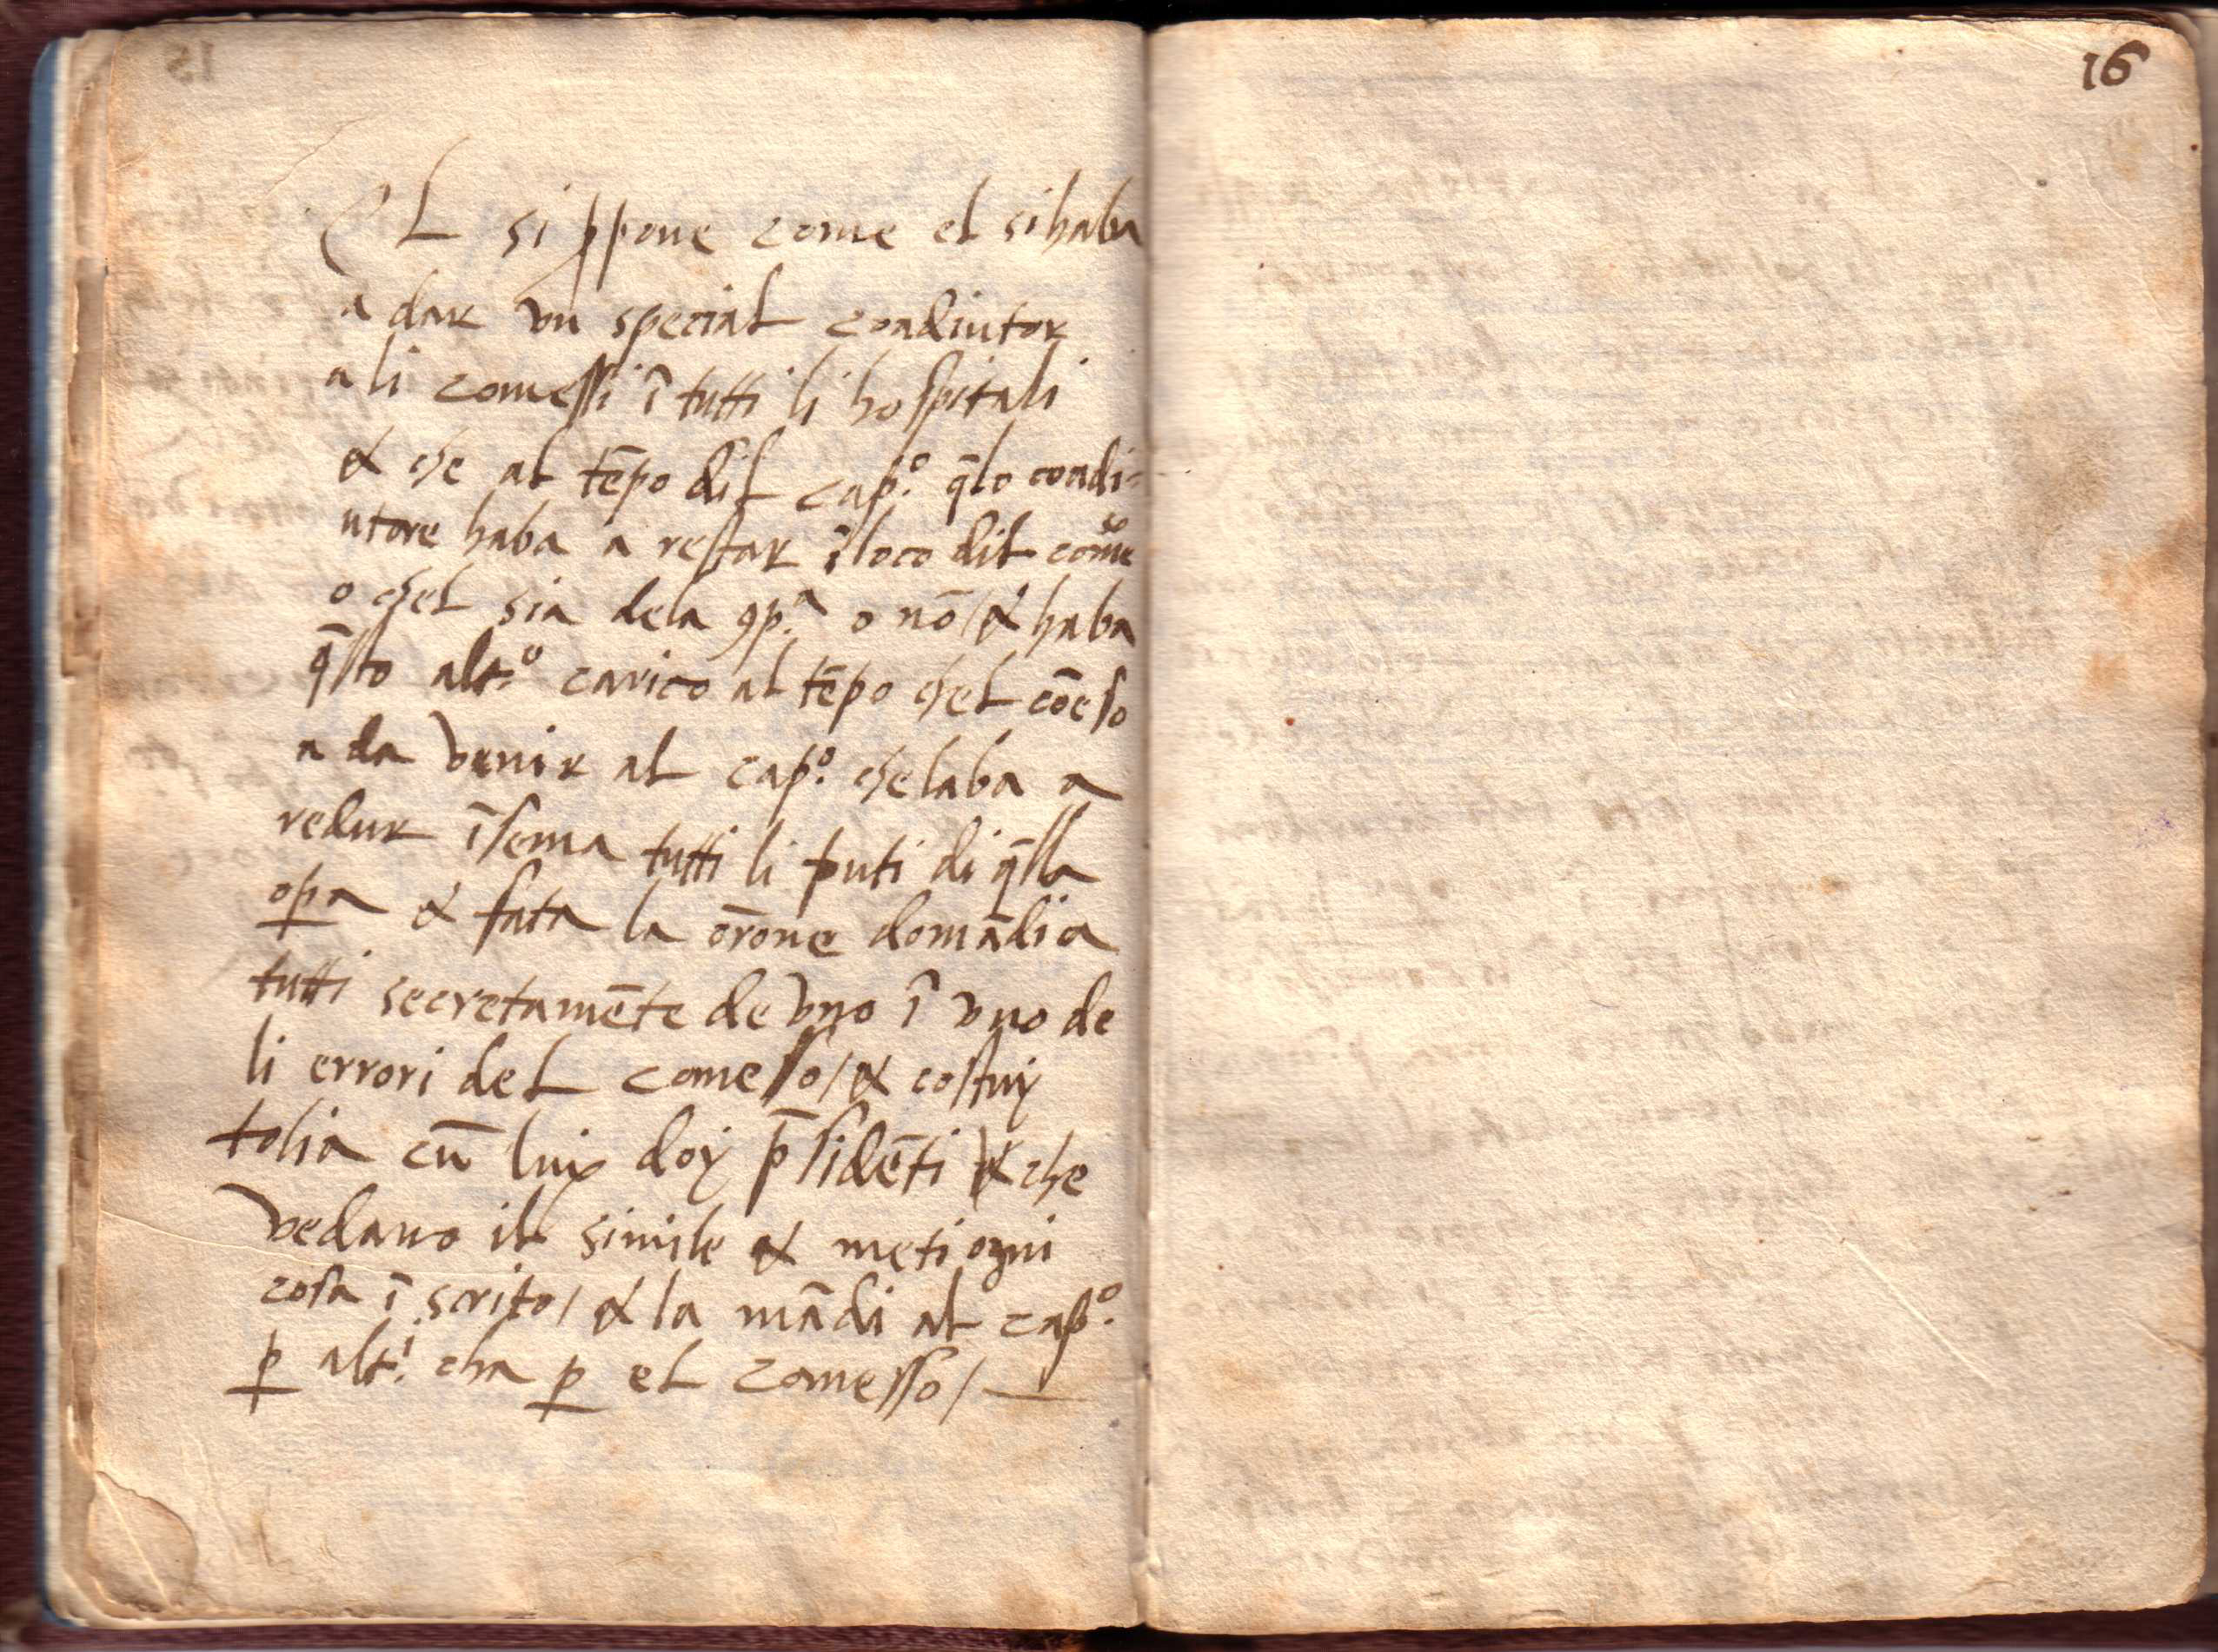 16
El si ꝓpone come el si haba
a dar un special coadiutor
a li comessi ī tutti li hospitali
& che al tēpo dil cap.º q̄lo coadi=
utore haba a restar ī loco dil com̄e so
o chel sia dela ꝯp.ª o nō / & haba
q̄sto alt.º carico al tēpo chel cōeso
a da venir al cap.º chelaba a
redur īsema tutti li puti di q̄lla
oꝑa & fata la ōrone domādi a
tutti secretamēte de uno ī uno de
li errori del comesso / & costuy
tolia cū luy doy p̄sidēti & che
vedano il simile & meti ogni
cosa ī scrito / & la mādi al cap.º
ꝑ alt.i cha ꝑ el comesso /